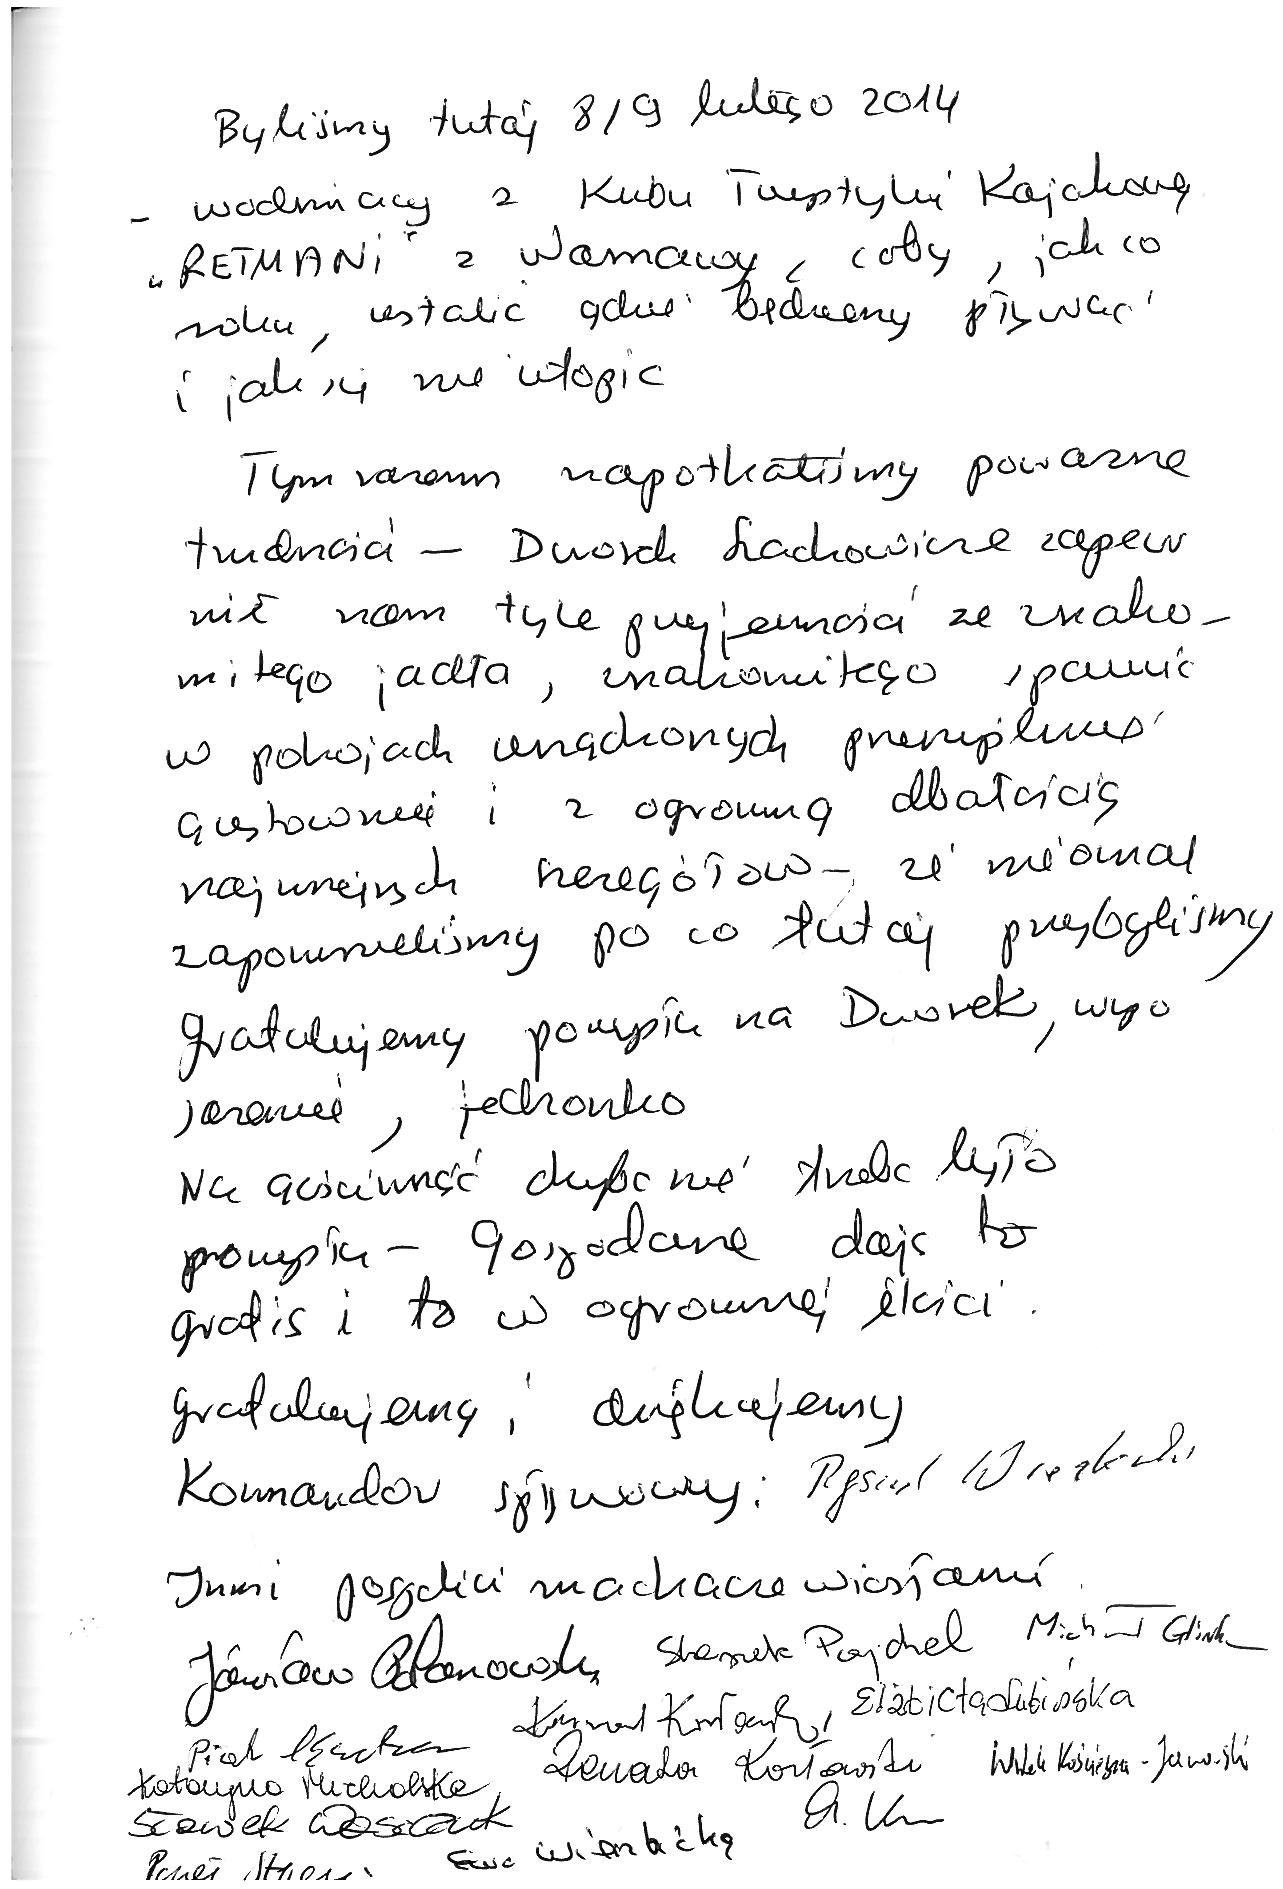 Byliśmy tutaj 8/9 lutego 2014
- wodniacy z Kubu Turystyki Kajakowej
"RETMANI" z Warszawy, coby, jak co
roku, ustalić gdzie będziemy pływać
i jak się nie utopić
Tym razem napotkaliśmy poważne
trudności – Dworek Łachowicze zapew
nił nam tyle przyjemności ze znako-
mitego jadła, znakomitego spania
w pokojach urządzonych przemyślnie
gustownie i z ogromną dbałością
najmniejszych szczegółów – że nieomal
zapomnieliśmy po co tutaj przybyliśmy
Gratulujemy pomysłu na Dworek, wypo
sażenie, jednakże
Na gościnność chyba nie trzeba było
pomysłu – Gospodarze dają to
gratis i to w ogromnej ilości.
Gratulujemy i dziękujemy
Komandor spływowy: Ryszard
Inni pospolici machacze wiosłami
Jarosław Staszek Pajchel Michał
Konrad Elżbieta
Piotr Renata Kozłowska Witek
Katarzyna Michalska
Sławek
Ewa Wierzbicka